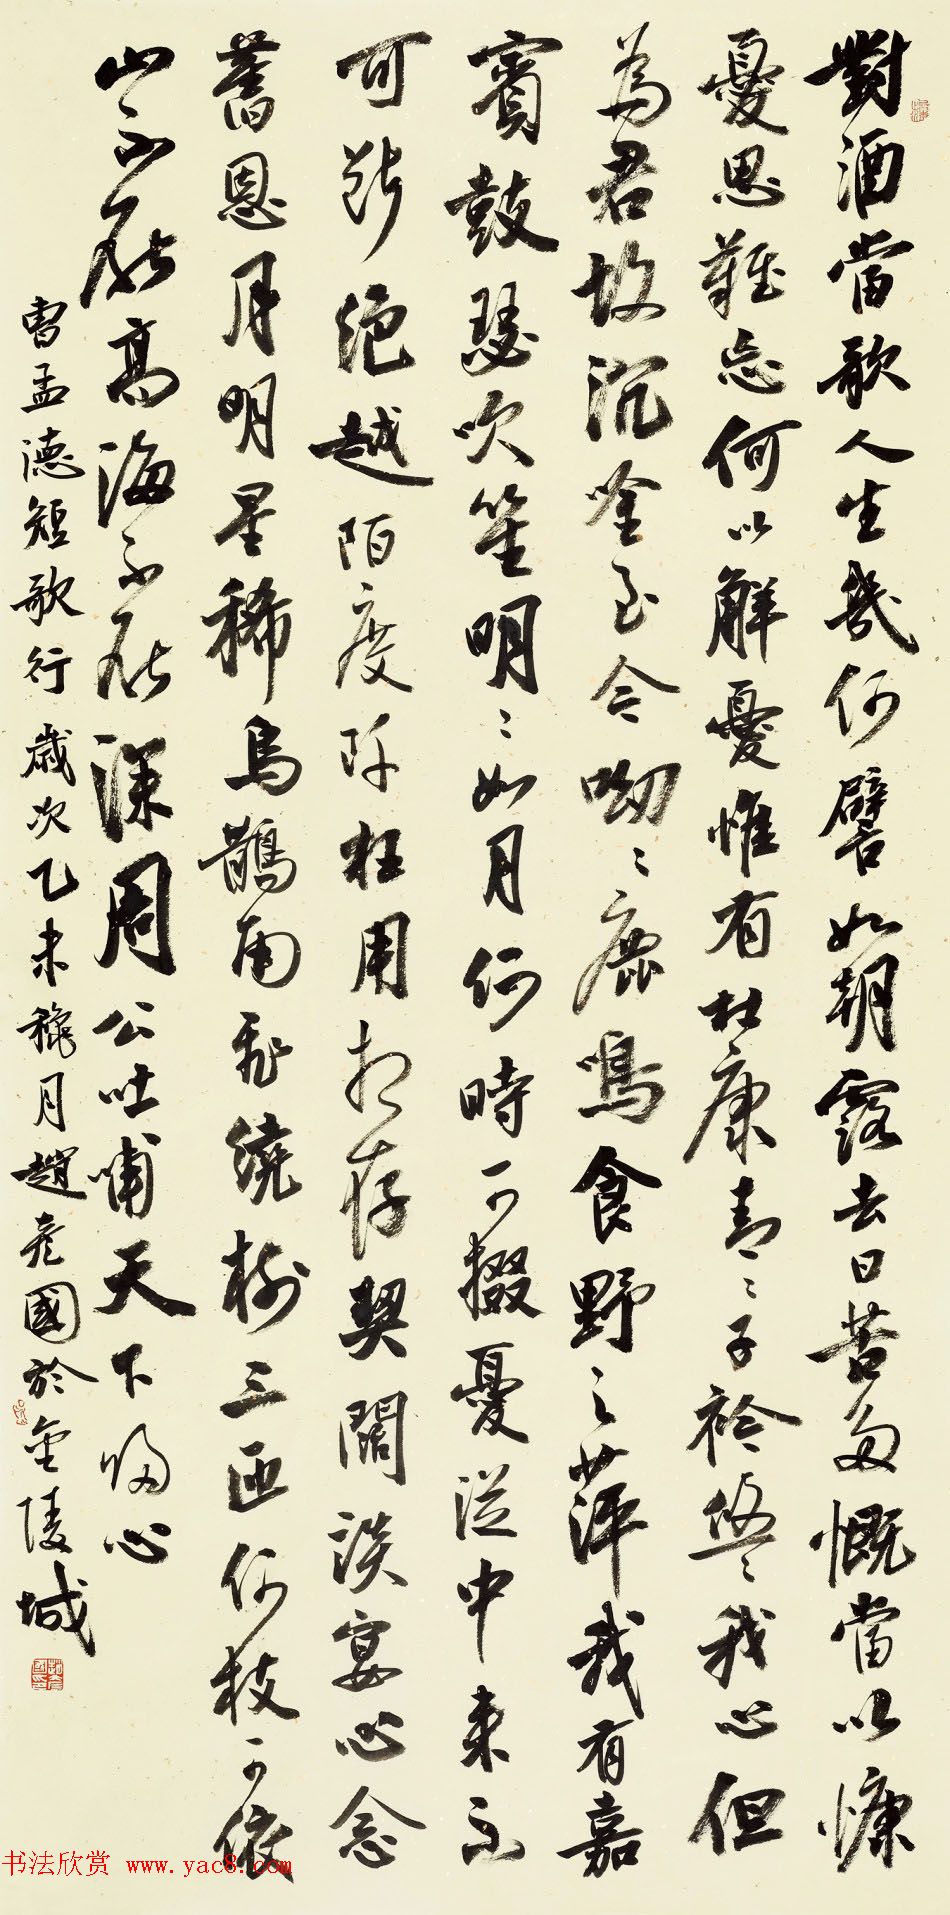 對酒當歌人生幾何譬如朝露去日苦多慨當以慷
憂思難忘何以解憂惟有杜康青〻子衿悠〻我心但
為君故沉唫至今呦〻鹿鳴食野之萍我有嘉
賓鼓瑟吹笙明〻如月何時可掇憂從中來不
可斷絕越陌度阡枉用相存契闊談宴心念
舊恩月明星稀烏鵲南飛繞樹三匝何枝可依
山不厭高海不厭深周公吐哺天下歸心
曹孟德短歌行歲次乙未穐月趙彥國於金陵城
书法欣赏 www.yac8.com